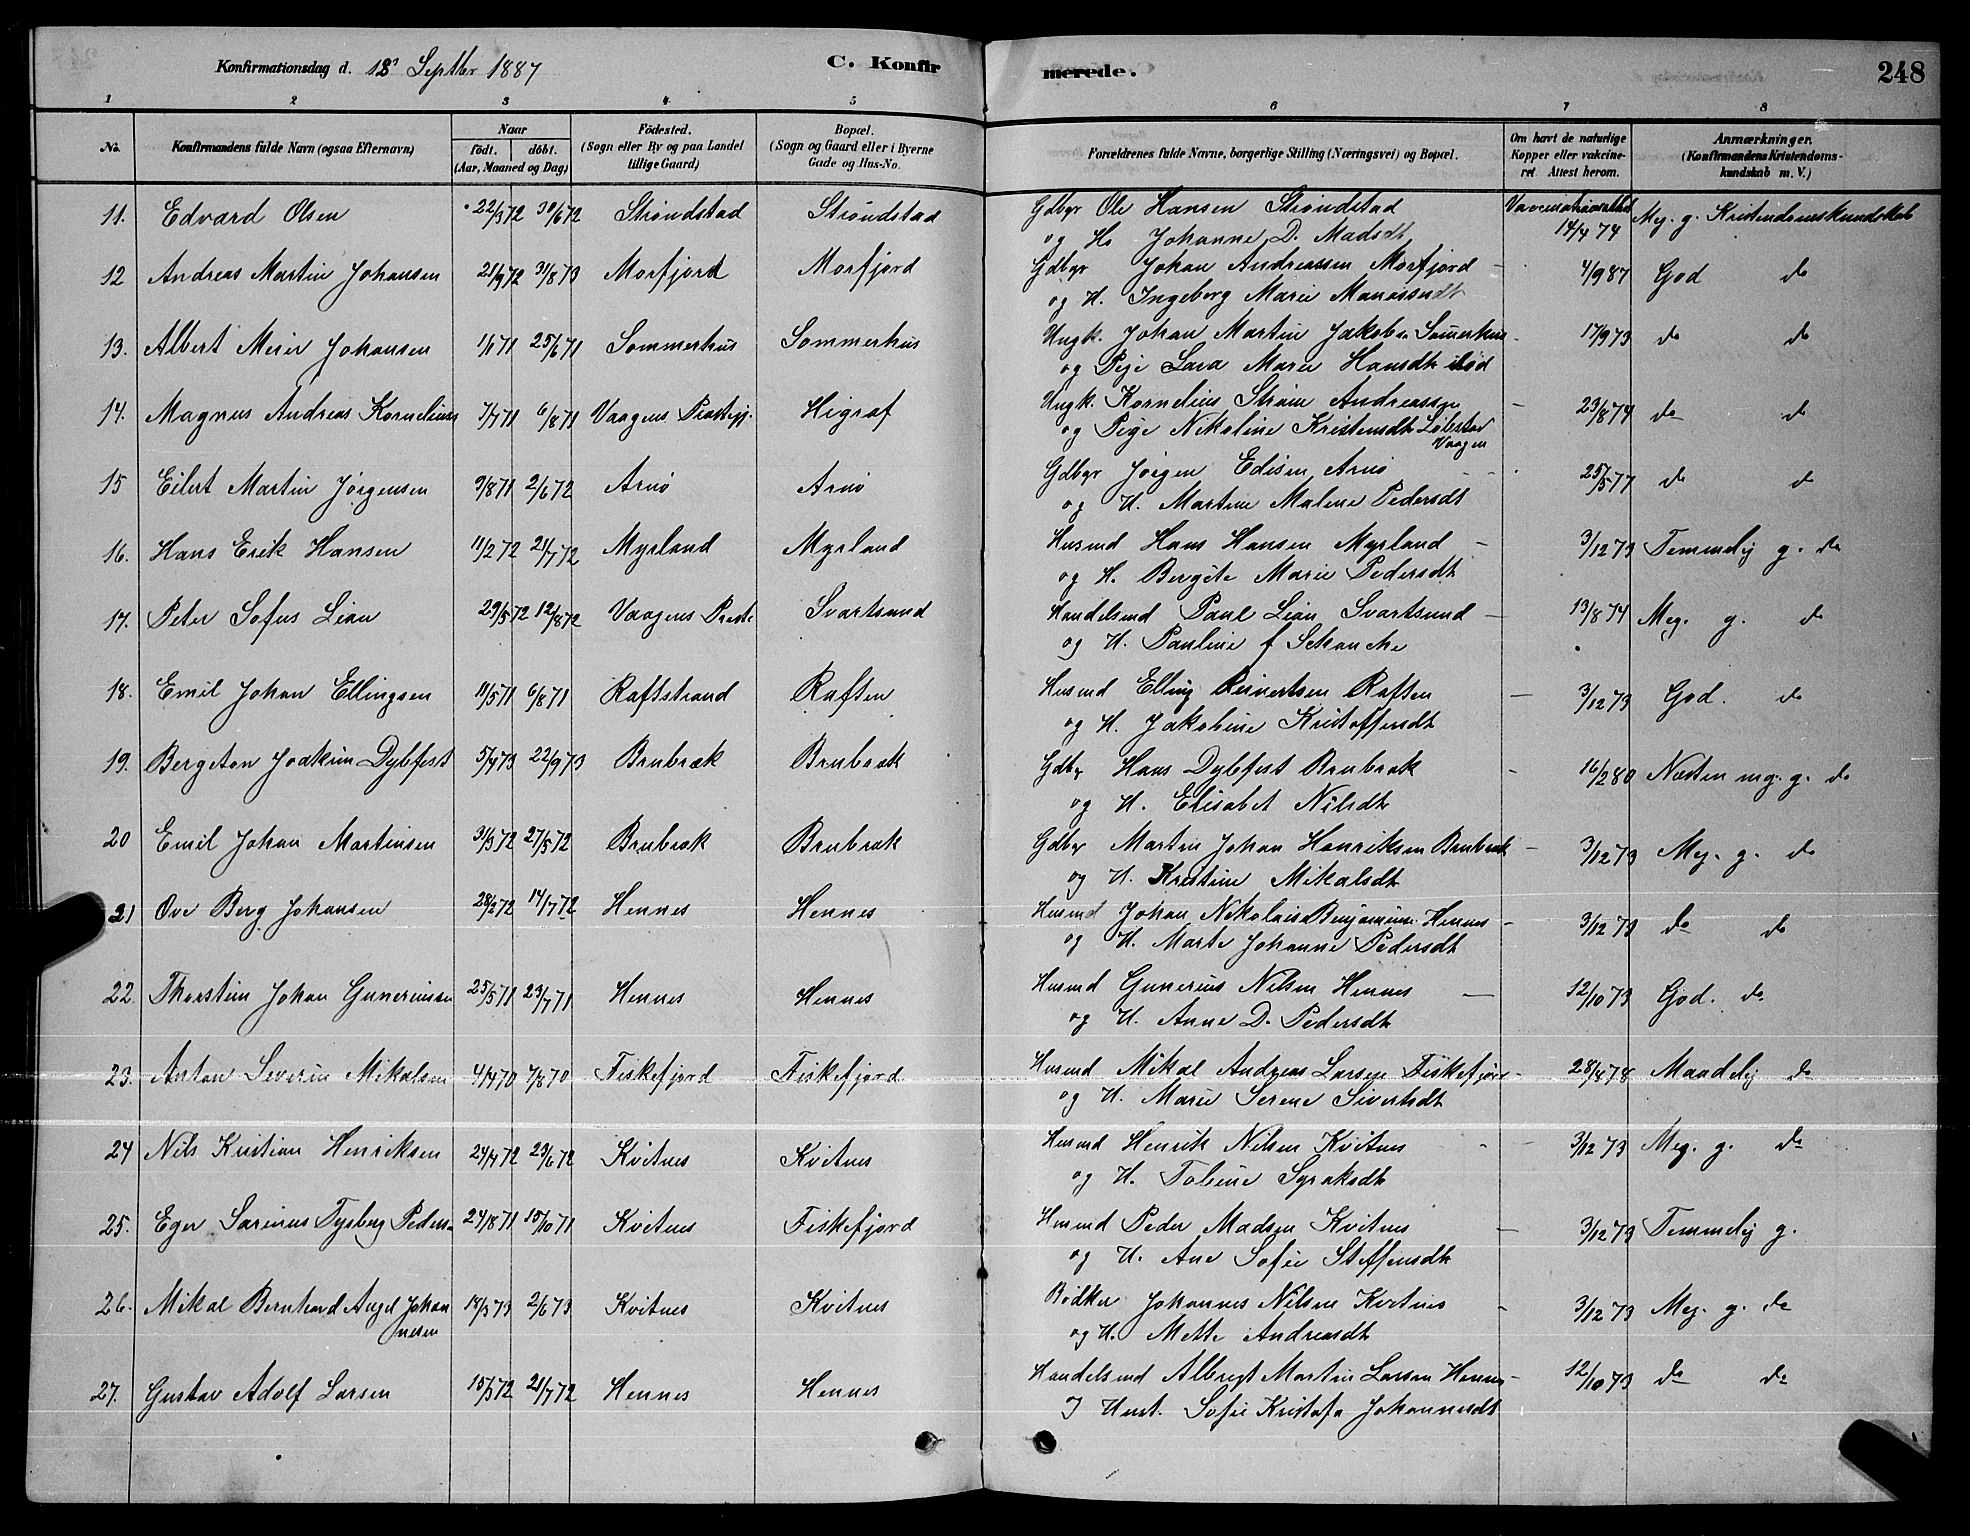 Konfirmationsdag d. 18' Septbr 1887 C. Konfir merede. 248
1 2 3 4 5 6 7 8
No. Konfirmandens fulde Navn (ogsaa Efternavn). Naar födt. döbt. (Aar, Maaned og Dag) Födested. (Sogn eller By og paa Landet tillige Gaard) Bopæl. (Sogn og Gaard eller i Byerne Gade og Hus-No. Forældrenes fulde Navne, borgerlige Stilling (Næringsvei) og Bopæl. Om havt de naturlige Kopper eller vakcineret. Attest herom. Anmærkninger. (Konfirmandens Kristendomskundskab m. V.)
11. Edvard Olsen 22/3 72 30/6 72 Strøndstad Strøndstad Gdbgr Ole Hansen Strøndstad 14/4 74 Mg. g. Kristendomskundskab
og H. Johanne D. Madsdt
12 Andreas Martin Johansen 21/9 72 31/8 73 Morfjord Morfjord Gdbgr Johan Andreassen Morfjord - 4/9 87 God do
og H. Ingeborg Marie
13. Albert Meier Johansen 1/1 71 25/6 71 Sommerhus Sommerhus Ungk. Johan Martin Jakobsen - 17/9 73 do do
og Pige Lara Marie Hansdt
14. Magnus Andreas Kornelius 7/7 71 6/8 71 Vaagens Prestegj. Higraf Ungk. Kornelius Strøm Andreassen - 23/8 74 do do
og Pige Nikoline Kristensdt
Vaagen
15 Eilert Martin Jørgensen 9/8 71 2/6 72 Arnø Arnø Gdbgr Jørgen Edisen Arnø - 25/5 77 do do
og H. Martine Malene Pedersdt
16. Hans Erik Hansen 11/2 72 21/7 72 Myrland Myrland Husmd Hans Hansen Myrland - 3/12 73 Temmelig g. do
og H. Bergite Marie Pedersdt
17. Peter Sofus Lian 29/5 72 12/8 72 Vaagens Prest. Svartsund Handelsmd Paul Lian Svartsund - 13/8 74 Meg. g. do
og H. Pauline f Schanche
18. Emil Johan Ellingsen 11/5 71 6/8 71 Raftstrand Raften Husmd Elling Raften - 3/12 73 God. do
og H. Jakobine Kristoffersdt
19. Bergeton Joakim Dybfest 5/4 73 22/9 73 Brubræk Brubrak Gdbr Hans Dybfest Brubrak - 16/2 80 Næsten mg. g. do
og H. Elisabet Nilsdt
20 Emil Johan Martinsen 31/3 72 27/5 72 Brubrak Brubrak Gdbr Martin Johan Henriksen Brubrak - 3/12 73 Mg. g. do
og H. Kristine Mikalsdt
21 Ove Berg Johansen 28/2 72 14/7 72 Hennes Hennes Husmd Johan Nikolai Benjaminsen Hennes - 3/12 73 do do
og H. Marte Johanne Pedersdt
22. Thorstein Johan Guneriussen 25/5 71 23/7 71 Hennes Hennes Husmd Gunerius Nilsen Hennes - 12/10 73 God. do
og H. Anne D. Pedersdt
23. Anton Severin Mikalsen 4/4 70 7/8 70 Fiskefjord Fiskefjord Husmd Mikal Andreas Larsen Fiskefjord - 28/4 78 Maadelig do
og H. Marie Serene Sivertsdt
24 Nils Kristian Henriksen 24/4 72 23/6 72 Kvitnes Kvitnes Husmd Henrik Nilsen Kvitnes - - 3/12 73 Meg. g. do
og H. Tobine Syraksdt
25. Eger Sarinus Tysberg Peders. 24/8 71 15/10 71 Kvitnes Fiskefjord Husmd Peder Madsen Kvitnes - 3/12 73 Temmelig g.
og H. Ane Sofie Steffensdt
26. Mikal Berntend Angel Johan 18/3 73 2/6 73 Kvitnes Kvitnes Bødker Johannes Nilsen Kvitnes - 3/12 73 Mg. g. do
nesen og H. Mette Andreasdt
27. Gustav Adolf Larsen 15/3 72 21/7 72 Hennes Hennes Handelsmd Albregt Martin Larsen Hennes - 12/10 73 do do
Sofie Kristofa Johannesdt